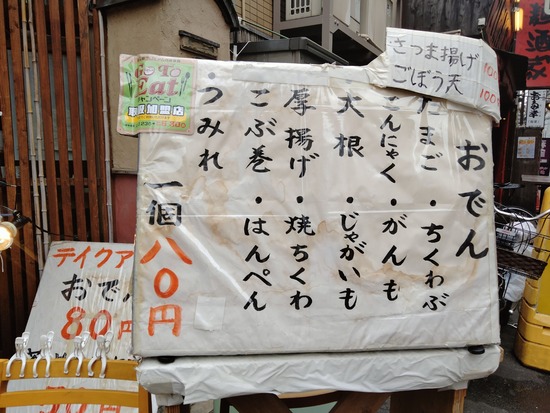 おでん
たまご・ちくわぶ
こんにゃく・がんも
大根・じゃがいも
厚揚げ・焼ちくわ
こぶ巻・はんぺん
・うみれ
一個八〇円
さつま揚げ 100
ごぼう天 100
Go To
Eat
キャンペーン
加盟店
テイクア
おでん
80円